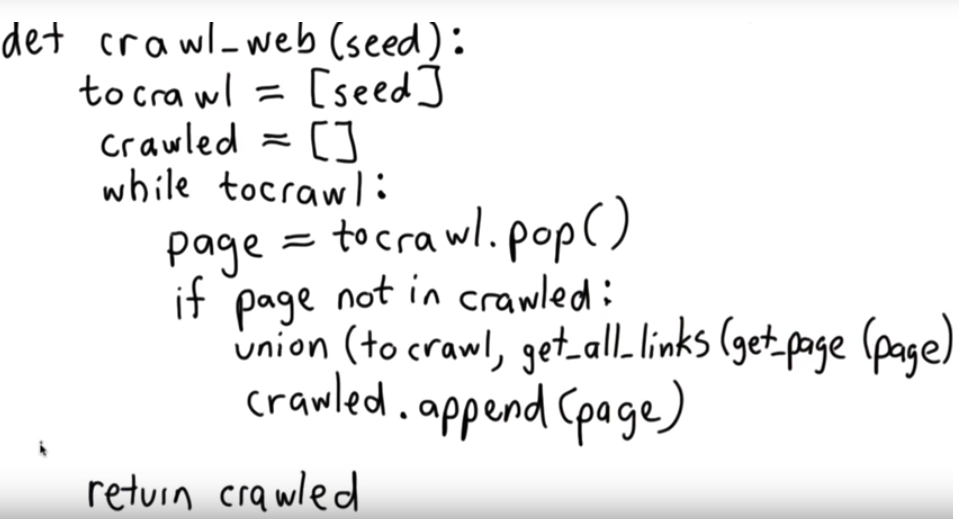 def crawl_web(seed):
tocrawl = [seed]
crawled = []
while tocrawl:
page = tocrawl.pop()
if page not in crawled:
union (tocrawl, get_all_links (get_page (page)
crawled.append(page)
return crawled